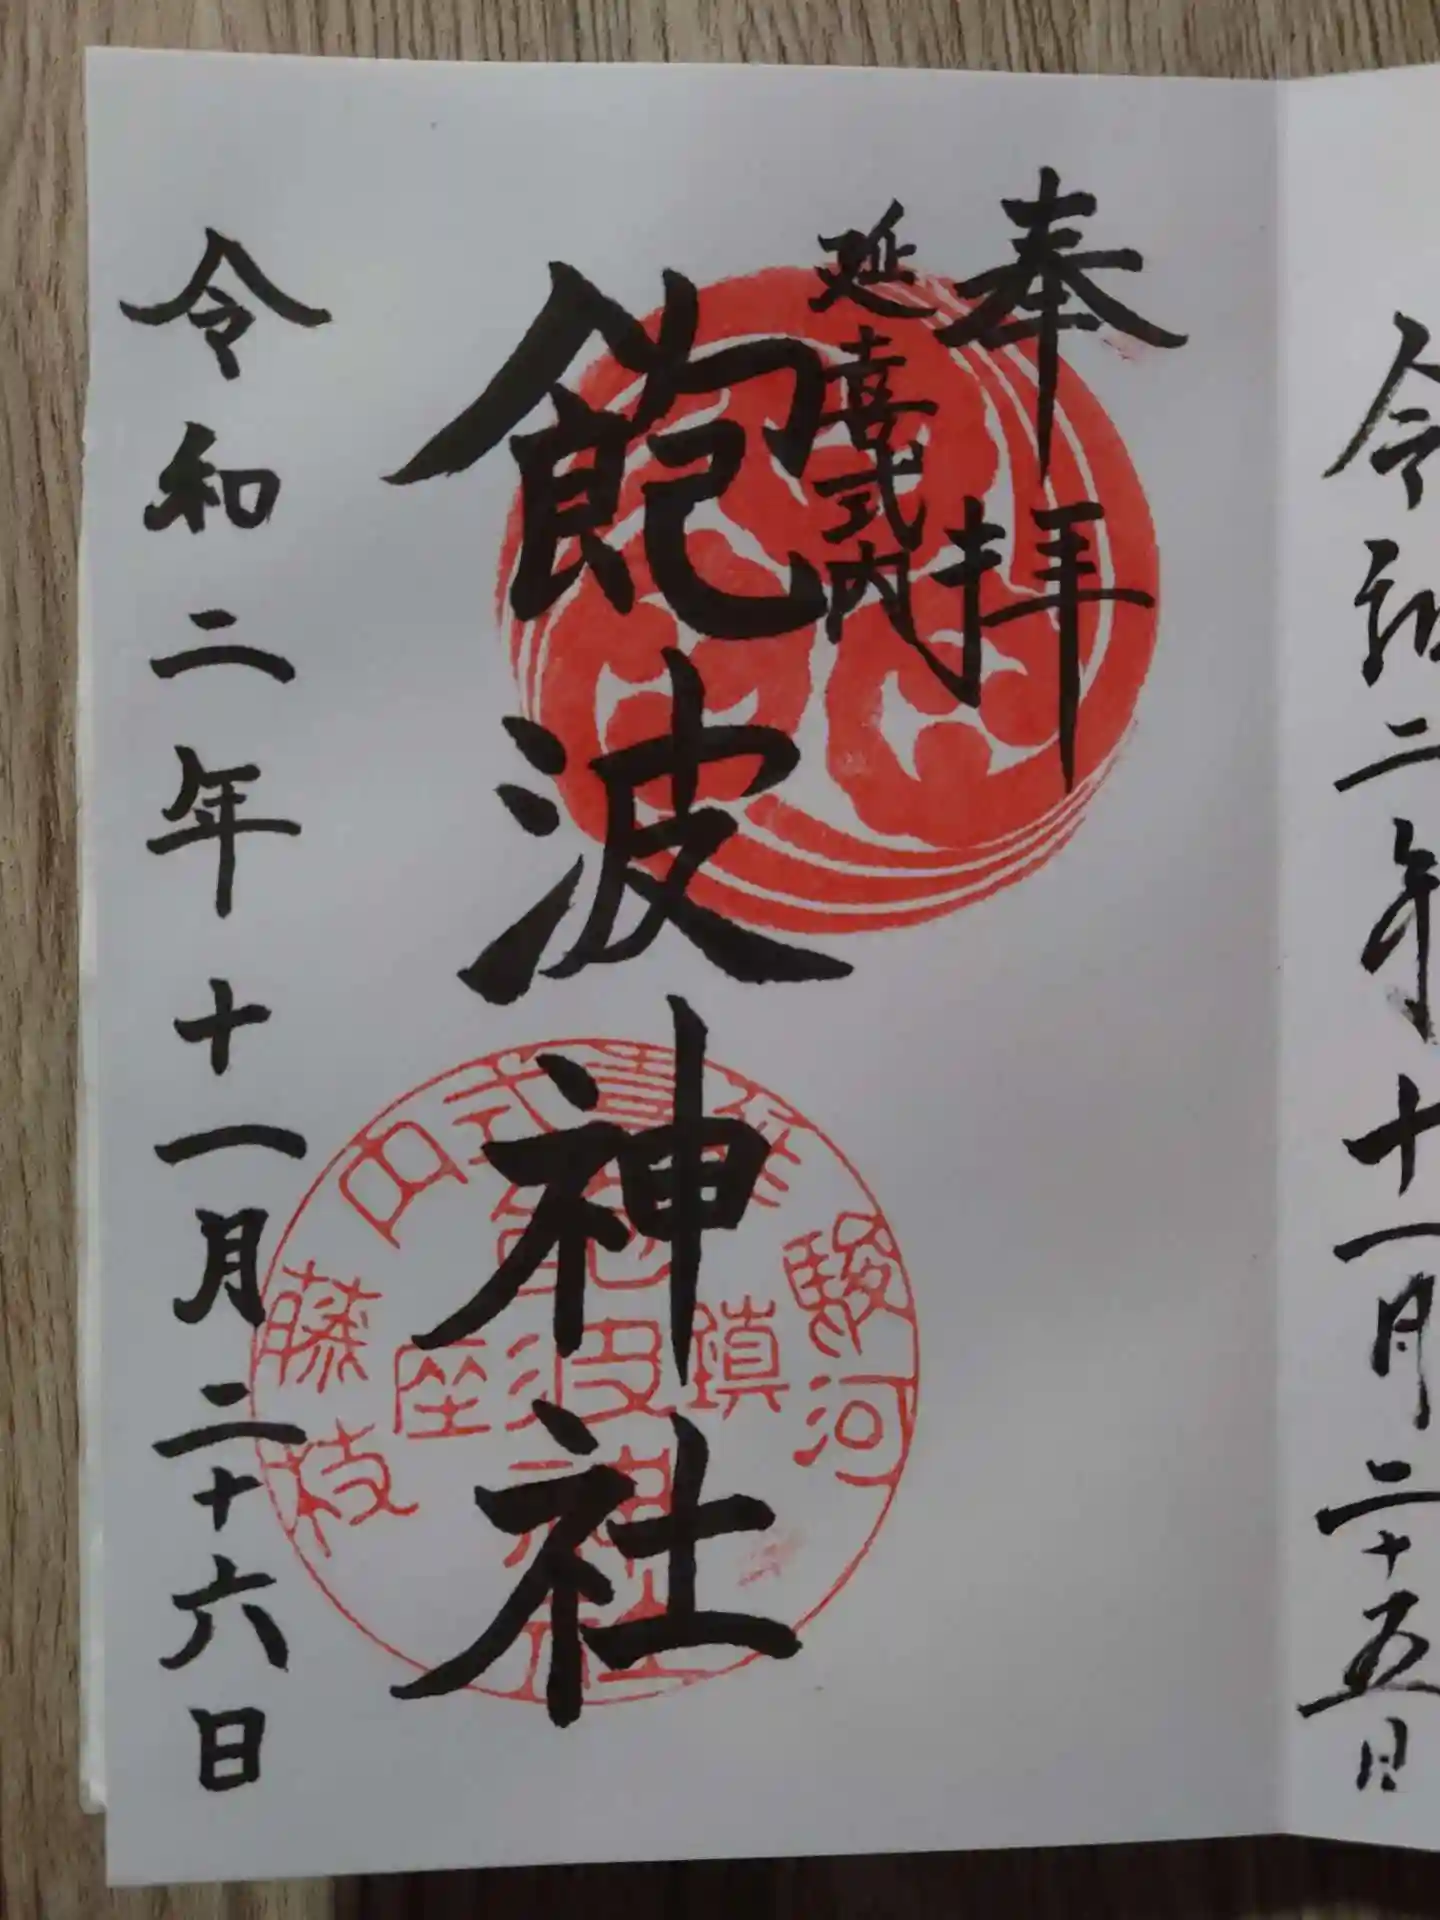 令和二年十一月二十五日
奉拝
延喜式内
飽波神社
令和二年十一月二十六日
駿河
延喜式内
藤枝
鎮座
飽波神社